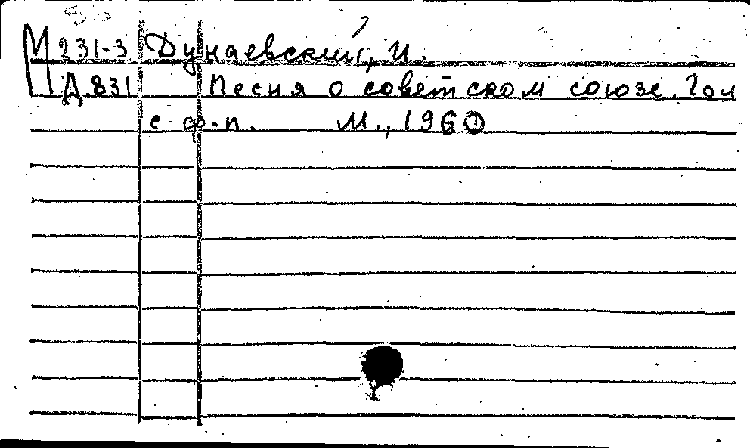 М 231-3 Дунаевский, И.
Д 831 Песня о советском союзе. Гол
с ф-п. М., 1960